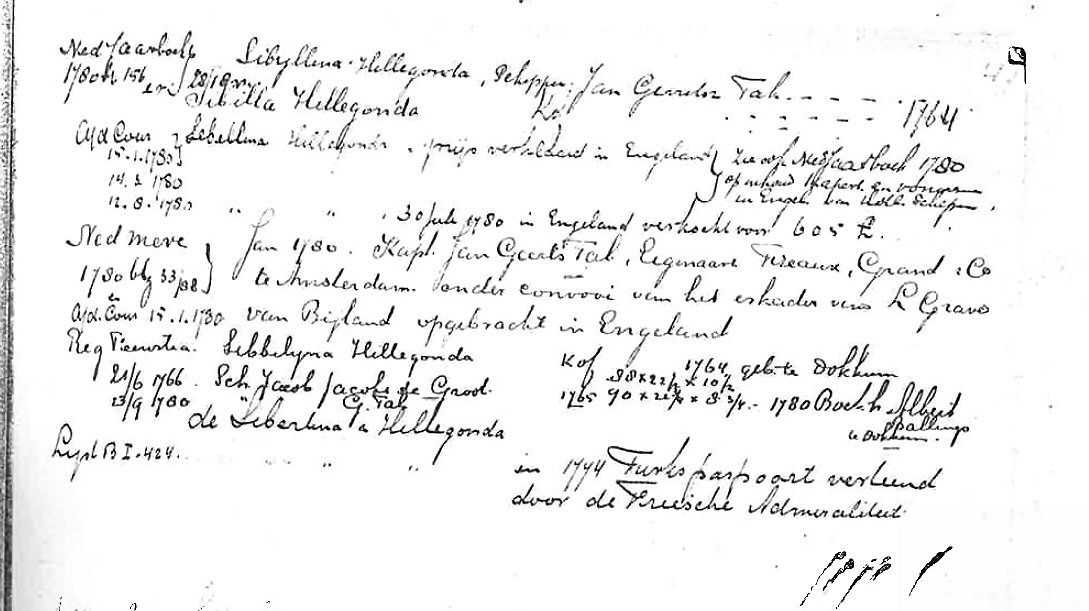 Ned Jaarboek Sibyllina Hillegonda, Schipper: Jan Gerrits Tak. - - - - 1764
1780 blz 156 en 28/18
Sibilla Hillegonda Kof
A/d Cour Sebellina Hillegonda, prijs verklaard in Engeland Zie ook Ned Jaarboek 1780
15.1.1780 op inhoud en vonnissen
14.2 1780 in Engel. van Holl. Schepen.
12.8.1780 " " , 30 Juli 1780 in Engeland verkocht voor 605 £.
Ned merc Jan 1780. Kapt. Jan Geerts Tak, Eigenaars Fizeaux, Grand & Co
1780 blz 33/38 te Amsterdam onder convooi van het eskader van L Grave
A/d. Cour 15.1.1780 van Bijland opgebracht in Engeland
Reg Sebbelyna Hillegonda Kof 1764 geb. te Dokkum
21/6 1766. Sch. Jacob Jacobs de Groot. 88 x 22 1/2 x 10 1/2
23/9 1780 G. Tak 1765 90 x 8 3/4 - 1780 Boekh Albert
de Libertina Hillegonda te Dokkum.
Lijst B I. 424. " " "
in 1774 Turks paspoort verleend
door de Friesche Admiraliteit